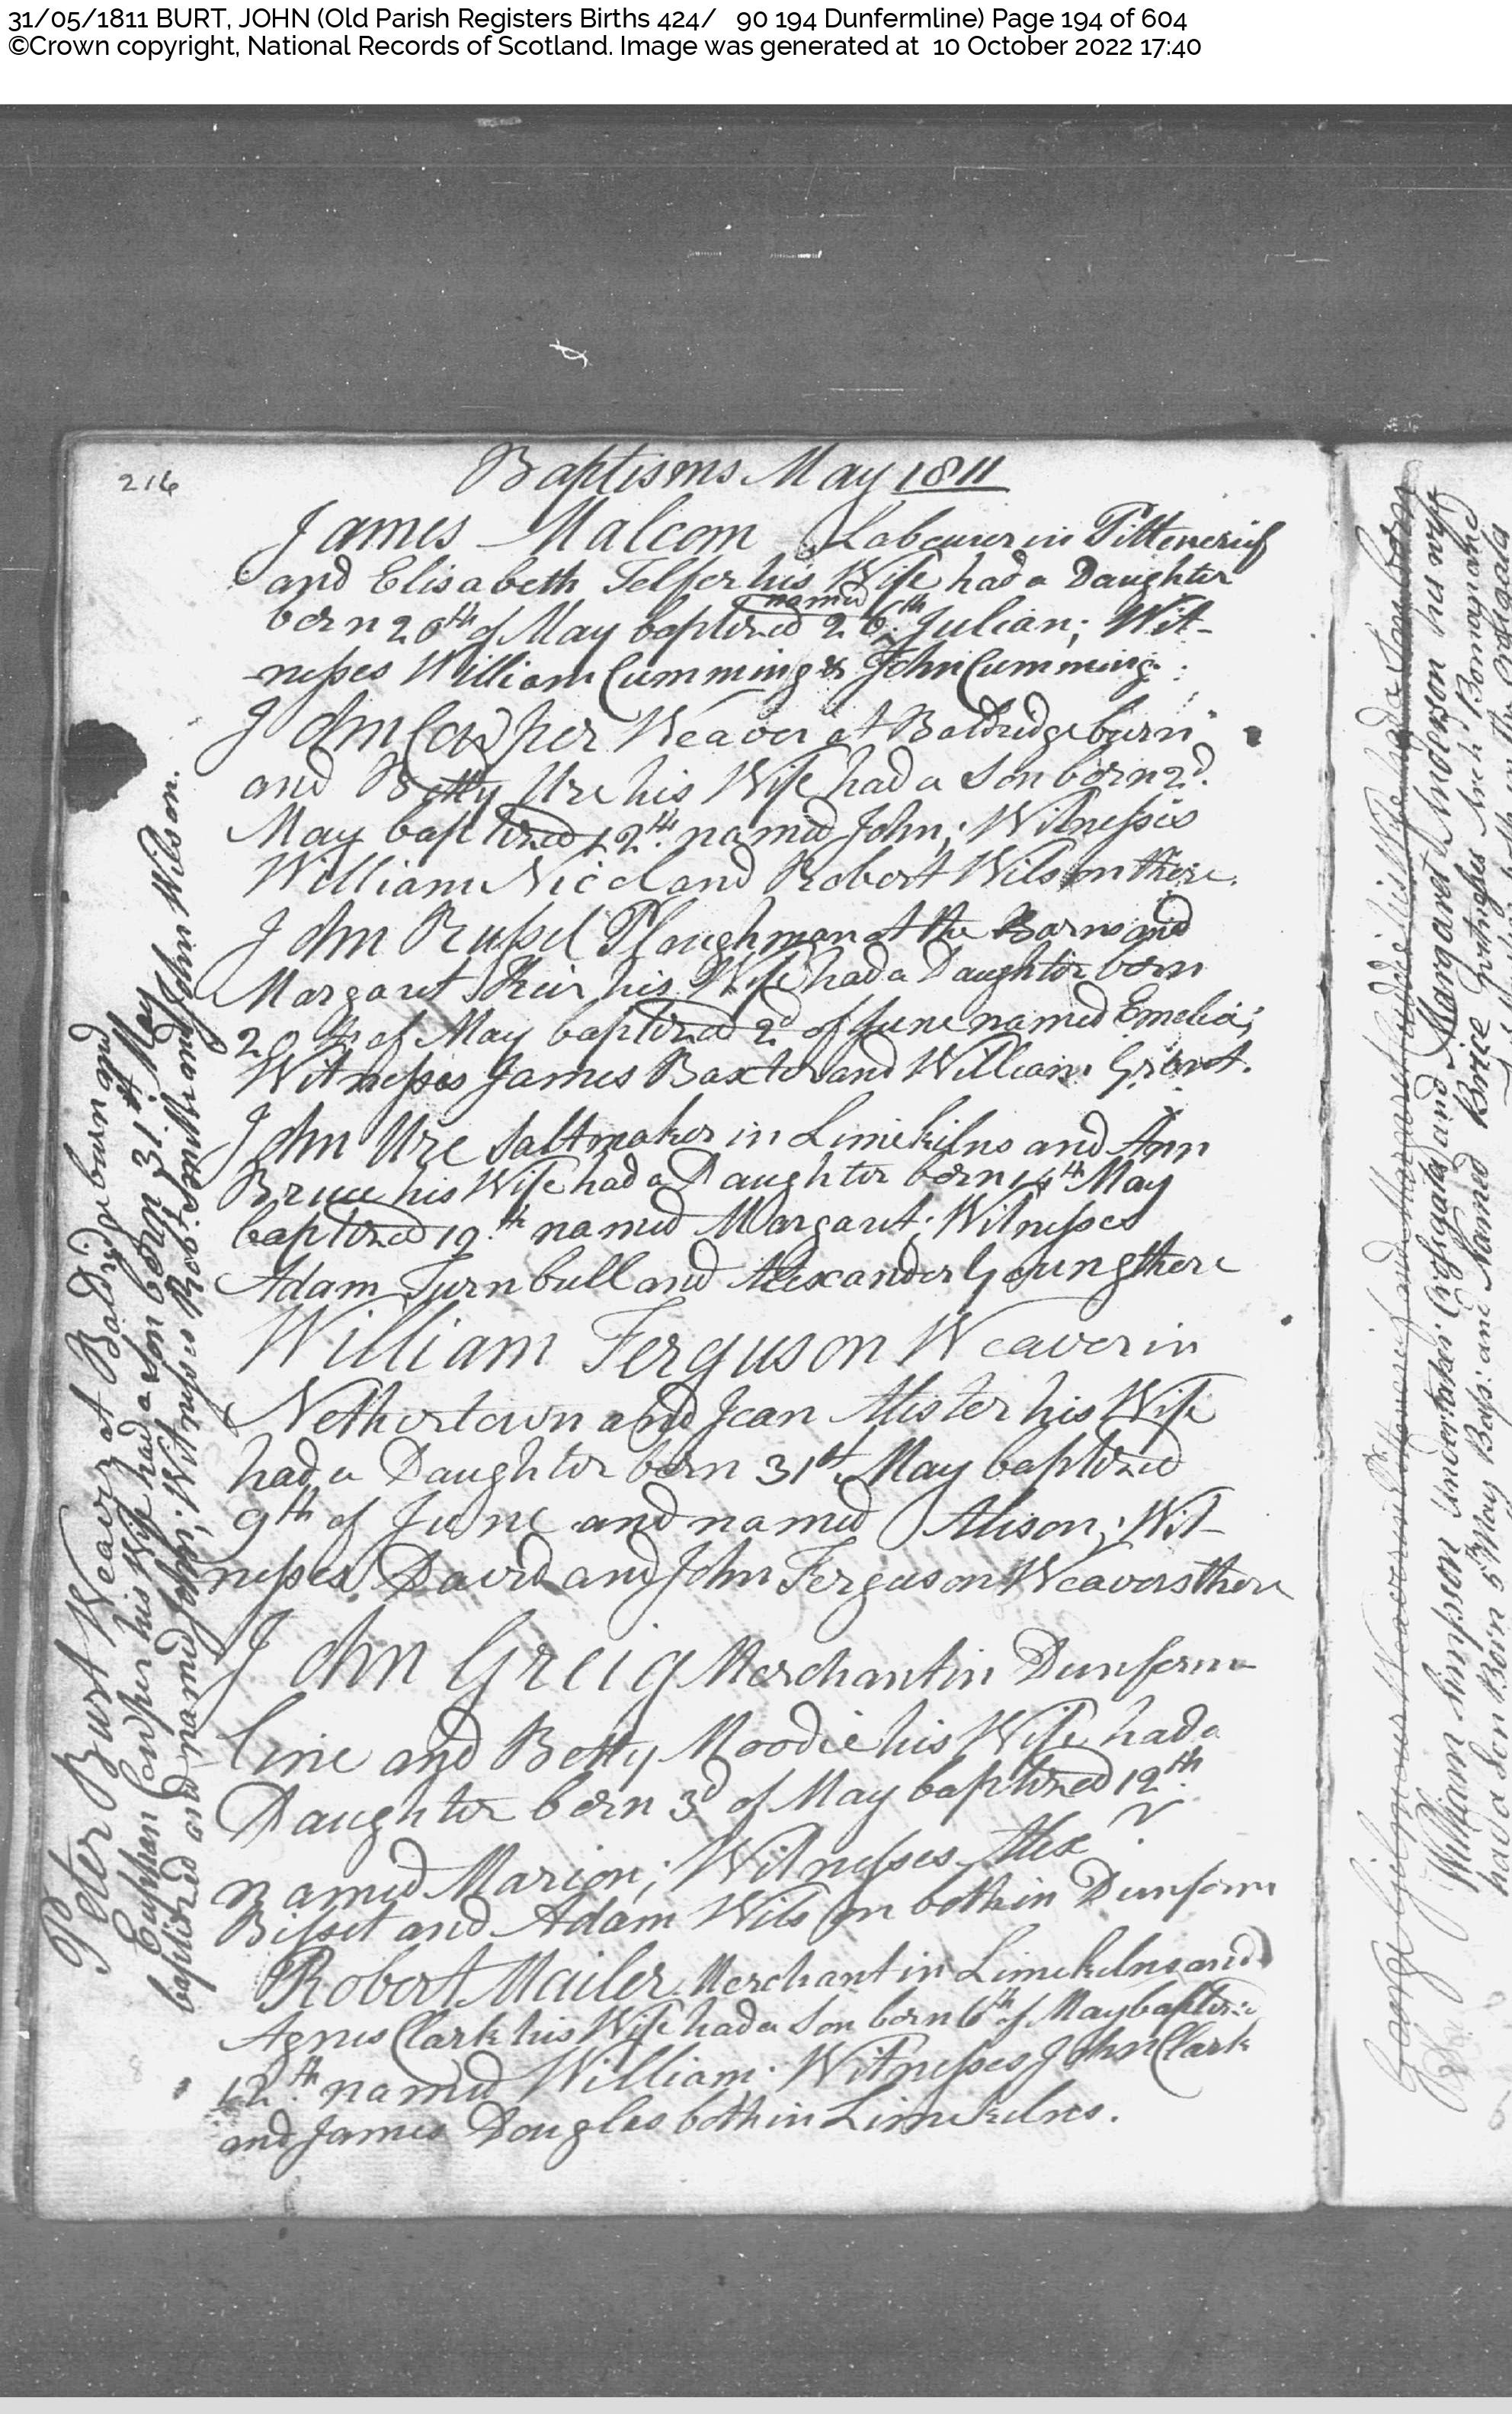 31/05/1811 BURT, JOHN (Old Parish Registers Births 424/ 90 194 Dunfermline) Page 194 of 604
©Crown copyright, National Records of Scotland. Image was generated at 10 October 2022 17:40
216
Baptisms May 1811
James Malcom Labourer in Pittencrief
and Elisabeth Telfer his Wife had a Daughter
born 20th of May baptized 26th named Julian; Wit-
-nesses William Cumming & John Cumming
John Cowper Weaver at Baldridgeburn
and Betty Ure his Wife had a Son born 2d.
May baptized 12th. named John; Witnesses
William Nicol and Robert Wilson there.
John Russel Ploughman at the Barns and
Margaret Keir his Wife had a Daughter born
20th of May baptized 2d of June named Emelia;
Witnesses James Baxter and William Grant.
John Ure Saltmaker in Limekilns and Ann
Bruce his Wife had a Daughter born 14th May
baptized 19th named Margaret; Witnesses
Adam Turnbull and Alexander Young there
William Ferguson Weaver in
Nethertown and Jean Alister his Wife
had a Daughter born 31st. May baptized
9th of June and named Alison; Wit-
nesses David and John Ferguson Weavers there
John Greig Merchant in Dunferm-
-line and Betty Moodie his Wife had a
Daughter born 3d of May baptized 12th.
named Marion; Witnesses Alexr.
Bisset and Adam Wilson both in Dunferm
Robert Mailer Merchant in Limekilns and
Agnes Clark his Wife had a Son born 6th of May baptized
12th named William. Witnesses John Clark
and James Douglas both in Limekilns.
Peter Burt Weaver at Baldridgeburn and
Euphan Cowper his Wife had a son born 31st. May
baptized and named John; Witnesses Robt. Smith and John Wilson.
George Gilmour Weaver in and Margaret his Wife had a Son born
William Simpson Undertaker Crossgates and Margaret Anderson his wife
had a Son Born 5th May Bap: and Named Brice Witnesses